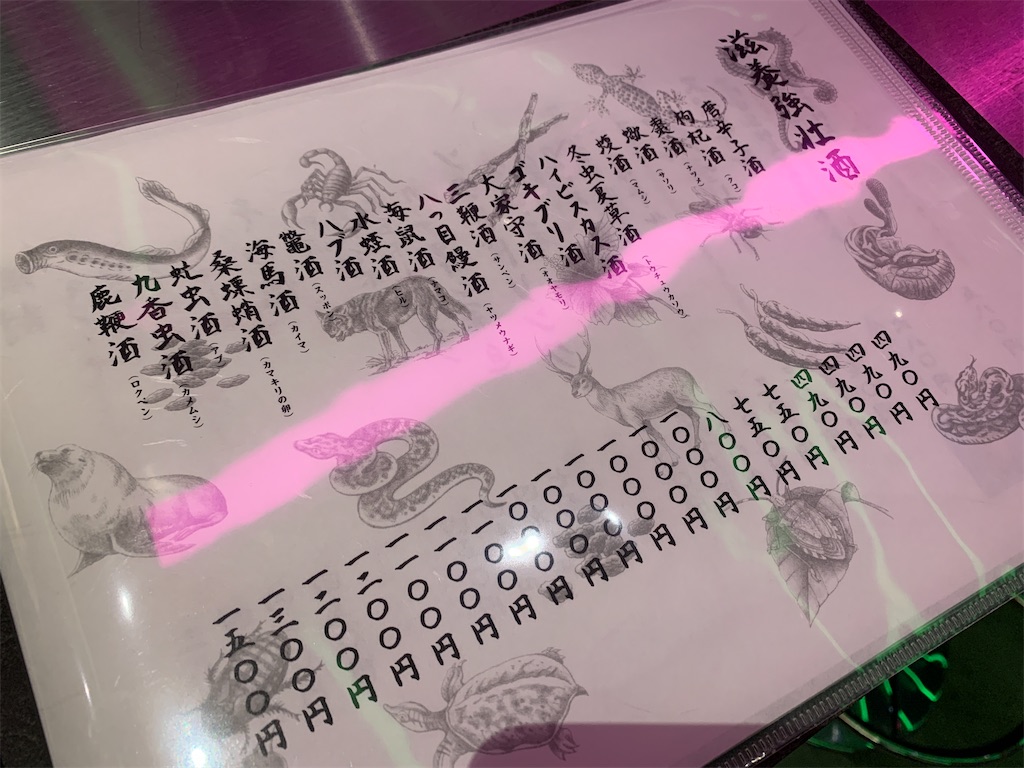 滋養強壮酒
唐辛子酒
枸杞酒(クコ)
棗酒(ナツメ)
蠍酒(サソリ)
蝮酒(マムシ)
冬虫夏草酒(トウチュウカソウ)
ハイビスカス酒
ゴキブリ酒
大家守酒(オオヤモリ)
三鞭酒(サンペン)
八つ目鰻酒(ヤツメウナギ)
海鼠酒(ナマコ)
水蛭酒(ヒル)
ハブ酒
鼈酒(スッポン)
海馬酒(カイマ)
桑螵蛸酒(カマキリの卵)
虻虫酒(アブ)
九香虫酒(カメムシ)
鹿鞭酒(ロクベン)
四九〇円
四九〇円
四九〇円
四九〇円
七五〇円
七五〇円
八〇〇円
一〇〇〇円
一〇〇〇円
一〇〇〇円
一〇〇〇円
一〇〇〇円
一〇〇〇円
一一〇〇円
一一〇〇円
一一〇〇円
一二〇〇円
一二〇〇円
一三〇〇円
一五〇〇円